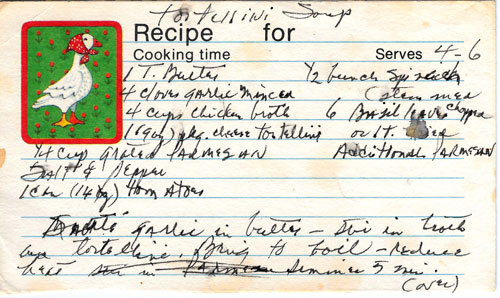 Tortellini Soup
Recipe for
Cooking time Serves 4-6
1 T. Butter ½ bunch Spinach
4 cloves garlic minced (stemmed
4 cups chicken broth 6 Basil leaves chopped
1 9oz pkg. cheese tortellini or 1 t. dried
¼ cup grated PARMESAN Additional PARMESAN
Salt & Pepper
1 can (14oz) tomAtoes
Sauté garlic in butter - stir in broth
and tortellini. Bring to boil - Reduce
heat stir in Parmesan simmer 5 min.
(over)